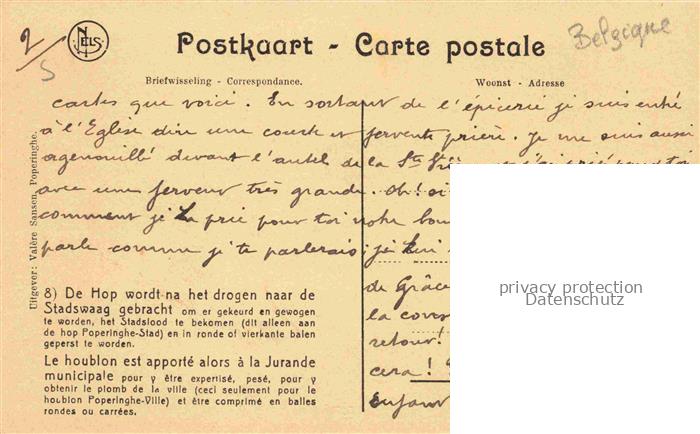 2/5
NELS
Postkaart - Carte postale
Belgique
Briefwisseling - Correspondance.
Woonst - Adresse
cartes que voici. En sortant de l'épicerie je suis entré
à l'Eglise dire une courte et fervente prière. Je me suis aussi
agenouillé devant l'autel de la Ste
avec une ferveur très grande. Oh! si
comment je La prie pour toi notre bou
parle comme je te parlerais; je Lui
de Grâce
la cour
retour!
cera!
enfant
Uitgever: Valère Sansen, Poperinghe.
8) De Hop wordt na het drogen naar de
Stadswaag gebracht om er gekeurd en gewogen
te worden, het Stadslood te bekomen (dit alleen aan
de hop Poperinghe-Stad) en in ronde of vierkante balen
geperst te worden.
Le houblon est apporté alors à la Jurande
municipale pour y être expertisé, pesé, pour y
obtenir le plomb de la ville (ceci seulement pour le
houblon Poperinghe-Ville) et être comprimé en balles
rondes ou carrées.
privacy protection
Datenschutz